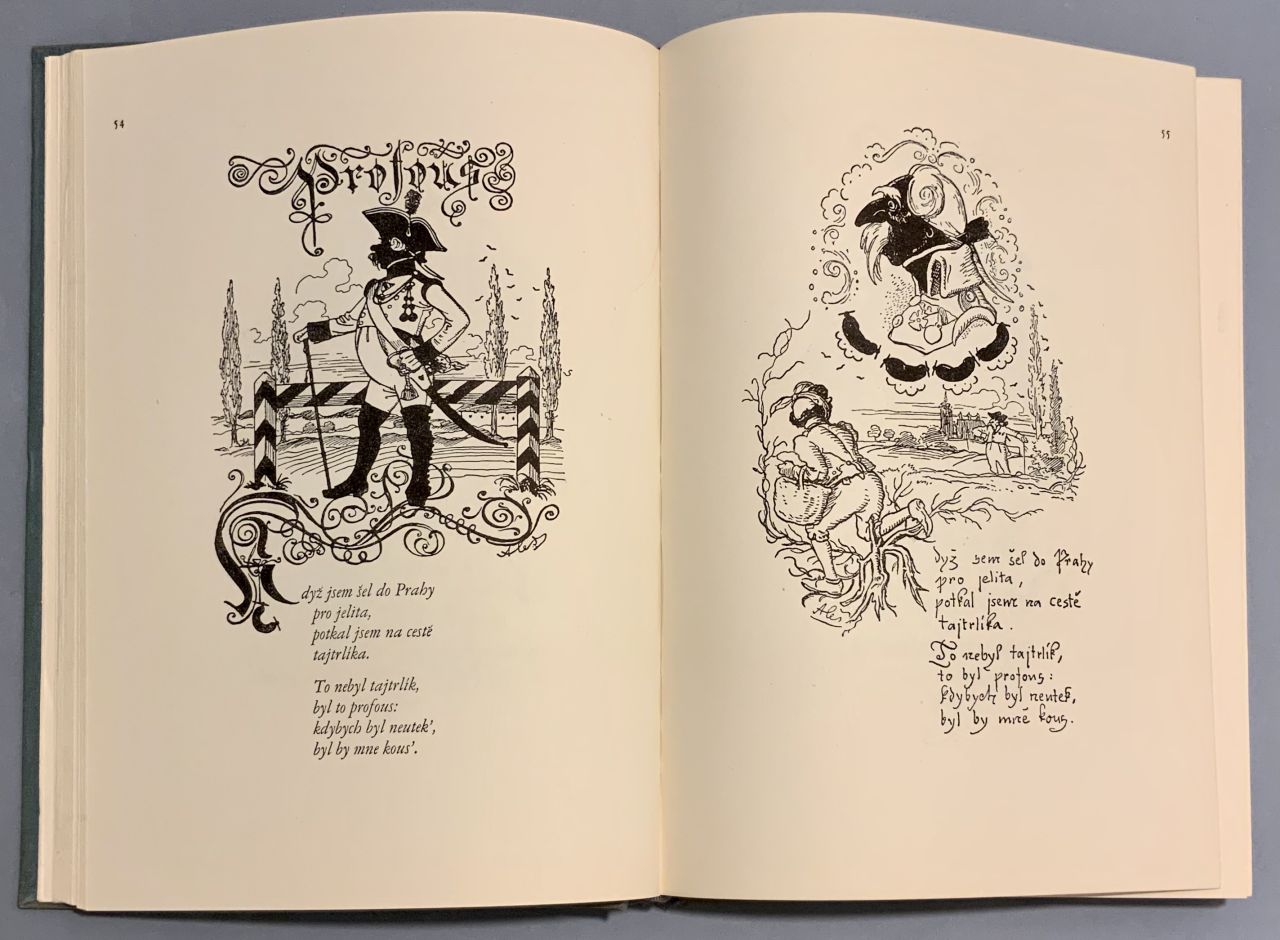 54
Profous
Aleš
Když jsem šel do Prahy
pro jelita,
potkal jsem na cestě
tajtrlíka.
To nebyl tajtrlík,
byl to profous:
kdybych byl neutek’,
byl by mne kous’.
55
Aleš
dyž jsem šel do Prahy
pro jelita,
potkal jsem na cestě
tajtrlíka.
To nebyl tajtrlík,
to byl profous:
kdybych byl neutek,
byl by mně kous.